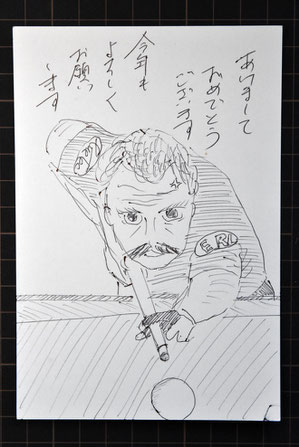 あけまして
おめでとう
ございます
今年も
よろしく
お願い
します